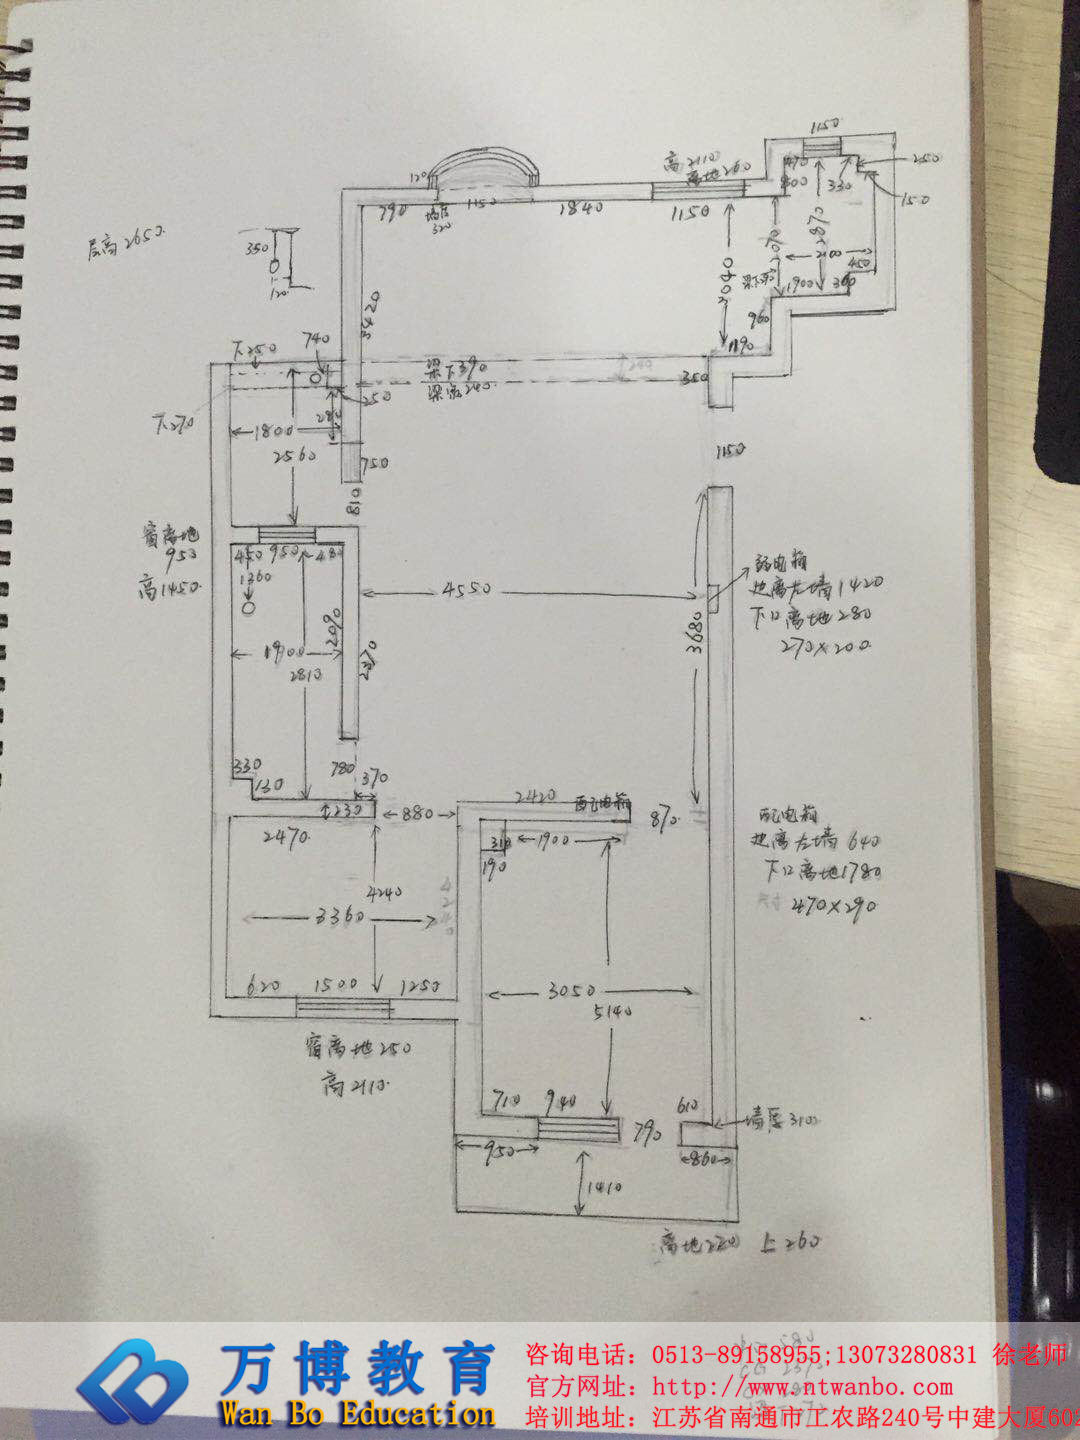 1150
250
470
800
330
150
高2110
离地260
120
790
墙厚
320
1150
1840
1150
层高2650
350
120
3420
2040
2070
2870
450
1900
360
960
1190
下250
740
梁下390
梁宽240
200
350
250
280
下270
1800
2560
750
810
1150
窗离地
950
高1450
450 950 480
1360
4550
弱电箱
边离左墙1420
下口离地280
270×200
2090
2370
3680
1900
2810
330
130
780
370
230
880
2420
配电箱
870
配电箱
边离左墙640
下口离地1780
尺寸 470×290
2470
310
1900
190
4240
4240
3360
620 1500 1250
3050
5140
窗离地250
高2110
710 940
610
790
墙厚310
950
860
1410
离地220 上260
万博教育
Wan Bo Education
咨询电话：0513-89158955;13073280831 徐老师
官方网址：http://www.ntwanbo.com
培训地址：江苏省南通市工农路240号中建大厦602